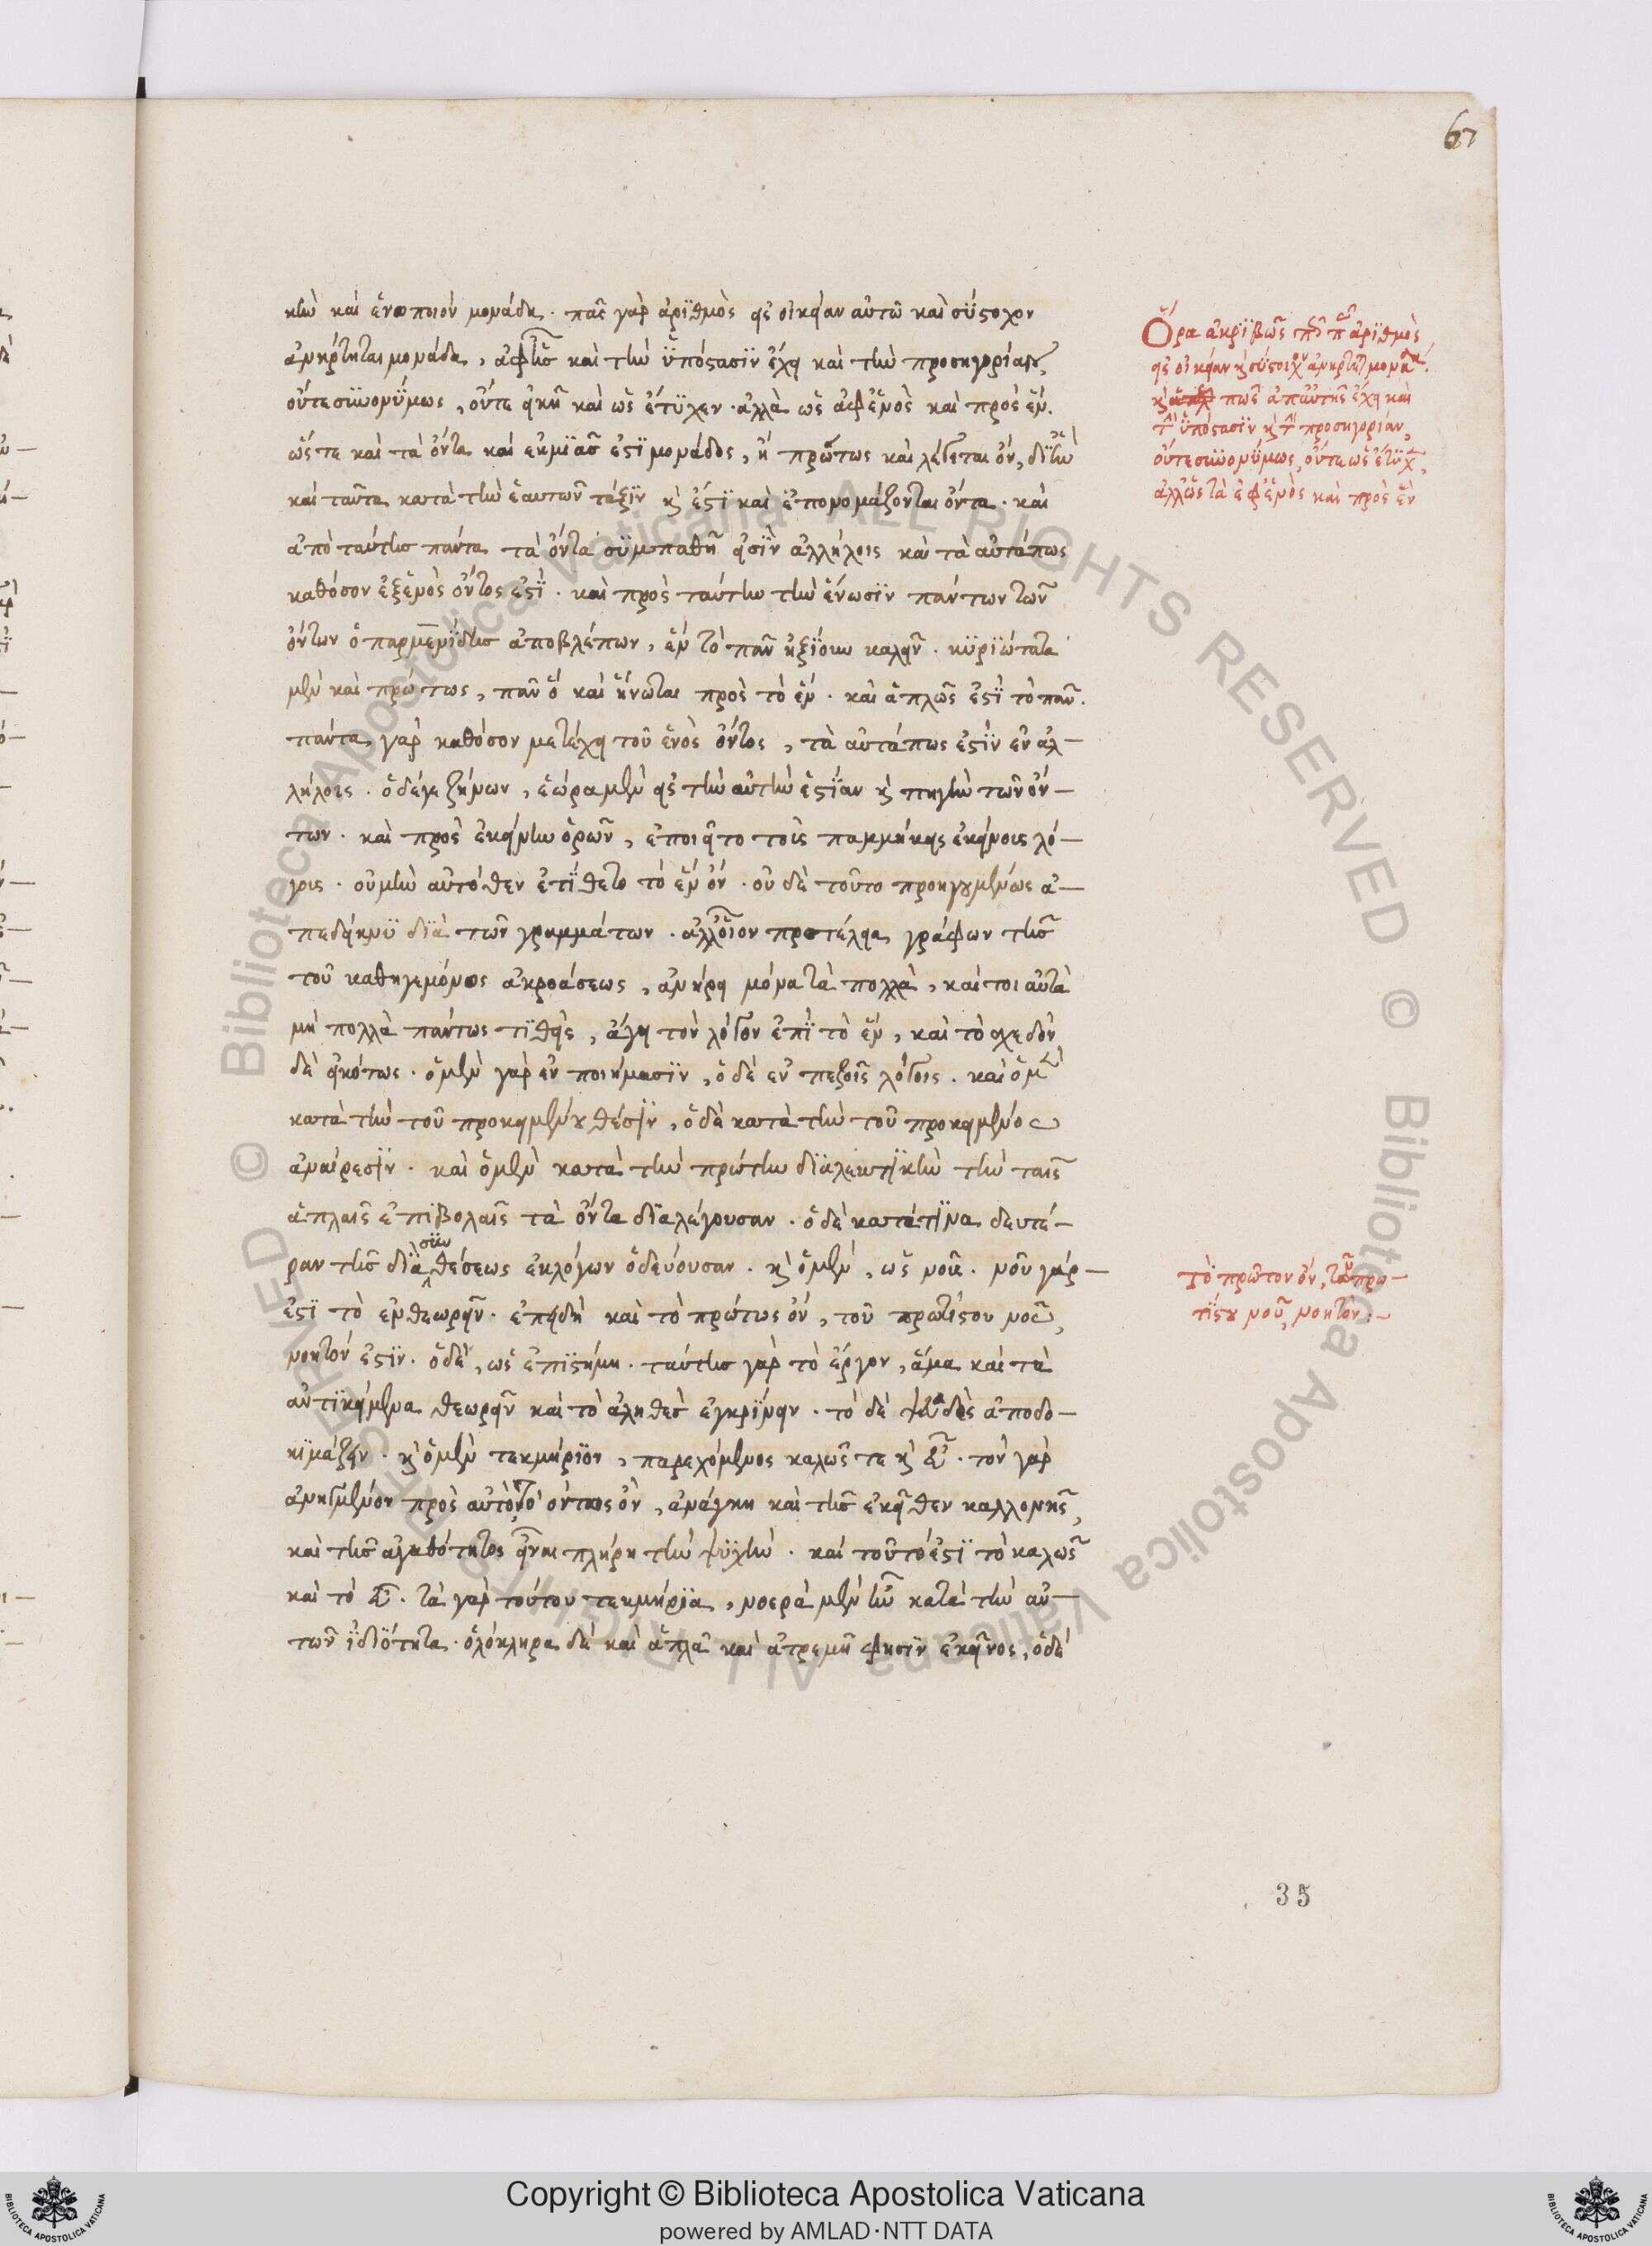 67
κὴν καὶ ἑνοποιὸν μονάδα. πᾶς γὰρ ἀρϊθμὸς εἰς οἰκείαν αὐτῶ καὶ σύστοιχον
ἀνήρτηται μονάδα, ἀφ' ἧς καὶ τὴν ὑπόστασϊν ἔχει καὶ τὴν προσηγορίαν,
οὔτε συνωνύμως, οὔτε εἰκῆ καὶ ὡς ἔτϋχεν. ἀλλὰ ὡς ἀφ' ἑνὸς καὶ πρὸς ἕν.
ὥς τε καὶ τὰ ὄντα καὶ ἐκ μϊᾶς ἐστὶ μονάδος, ἣ πρώτως καὶ λέγεται ὄν, δϊ' ἣν
καὶ ταῦτα κατὰ τὴν ἑαυτῶν τάξϊν κ̀ ἐστϊ καὶ ἐπονομάζονται ὄντα. καὶ
ἀπὸ ταύτης πάντα τὰ ὄντα συμπαθῆ εἰσὶν ἀλλήλοις καὶ τὰ αὐτά πως
καθόσον ἐξ ἑνὸς ὄντος ἐστΐ. καὶ πρὸς ταύτην τὴν ἕνωσϊν πάντων τῶν
ὄντων ὁ παρμενΐδης ἀποβλέπων, ἓν τὸ πᾶν ἠξΐου καλεῖν. κυρϊώτατα
μὲν καὶ πρώτως, πᾶν ὃ καὶ ἥνωται πρὸς τὸ ἕν. καὶ ἁπλῶς ἐστΐ τὸ πᾶν.
πάντα γὰρ καθόσον μετέχει τοῦ ἑνὸς ὄντος, τὰ αὐτά πως ἐστΐν ἐν ἀλ–
λήλοις. ὁ δέ γε ζήνων, ἑώρα μὲν εἰς τὴν αὐτὴν ἑστίαν κ̀ πηγὴν τῶν ὄν–
των. καὶ πρὸς ἐκείνην ὁρῶν, ἐποιεῖτο τοὺς παμμήκεις ἐκείνους λό–
γους. οὐ μὴν αὐτόθεν ἐτΐθετο τὸ ἓν ὄν. οὐ δὲ τοῦτο προηγουμένως ἀ–
πεδείκνυ δϊὰ τῶν γραμμάτων. ἀλλ' οἷον προτέλεια γράφων τῆς
τοῦ καθηγεμόνος ἀκροάσεως, ἀνήρει μόνα τὰ πολλὰ, καίτοι αὐτὰ
μὴ πολλὰ πάντως τϊθεὶς, ἄγει τὸν λόγον ἐπῒ τὸ ἕν, καὶ τὸ σχεδόν
δὲ εἰκότως. ὁ μὲν γὰρ ἐν ποιήμασϊν, ὁ δὲ ἐν πεζοῖς λόγοις. καὶ ὁ μὲν
κατὰ τὴν τοῦ προκειμένου θέσϊν, ὁ δὲ κατὰ τὴν τοῦ προκειμένου
ἀναίρεσϊν. καὶ ὁ μὲν κατὰ τὴν πρώτην δϊαλεκτϊκὴν τὴν ταῖς
ἁπλαῖς ἐπιβολαῖς τὰ ὄντα δϊαλέγουσαν. ὁ δὲ κατά τϊνα δευτέ–
ραν τῆς δϊὰ συνθέσεως ἐκ λόγων ὁδεύουσαν. κ̀ ὁ μὲν, ὡς νοῦς. νοῦ γάρ–
ἐστϊ τὸ ἐνθεωρεῖν. ἐπειδὴ καὶ τὸ πρώτως ὄν, τοῦ πρωτίστου νοῦ,
νοητόν ἐστϊν. ὁ δὲ, ὡς ἐπϊστήμη. ταύτης γὰρ τὸ ἔργον, ἅμα καὶ τὰ
ἀντϊκείμενα θεωρεῖν καὶ τὸ ἀληθὲς ἐγκρΐνειν. τὸ δὲ ψεῦδος ἀποδο–
κϊμάζειν. κ̀ ὁ μὲν τεκμήρϊον, παρεχόμενος καλῶς τε κ̀ εὖ. τὸν γὰρ
ἀνηγμένον πρὸς αὐτὸ τὸ ὄντως ὄν, ἀνάγκη καὶ τῆς ἐκεῖθεν καλλονῆς,
καὶ τῆς ἀγαθότητος εἶναι πλήρη τὴν ψϋχήν. καὶ τοῦτό ἐστϊ τὸ καλῶς
καὶ τὸ εὖ. τὰ γὰρ τούτου τεκμήρϊα, νοερὰ μὲν ἦν κατὰ τὴν αὐ–
τῶν ἰδϊότητα. ὁλόκληρα δὲ καὶ ἁπλᾶ καὶ ἀτρεμῆ φησϊν ἐκεῖνος, ὁ δέ
Ὅρα ἀκρϊβῶς πῶς πᾶς ἀρϊθμὸς
εἰς οἰκείαν κ̀ σύστοιχον ἀνήρτηται μονάδα.
κ̀ πῶς ἀπ' αὐτῆς ἔχει καὶ
τὴν ὑπόστασϊν κ̀ τὴν προσηγορίαν,
οὔτε συνωνύμως, οὔτε ὡς ἔτυχε,
ἀλλ' ὡς τὰ ἐφ' ἑνὸς καὶ πρὸς ἓν
Τὸ πρῶτον ὄν, τοῦ πρω–
τΐστου νοῦ, νοητόν:–
35
© Biblioteca Apostolica Vaticana ALL RIGHTS RESERVED
Copyright © Biblioteca Apostolica Vaticana
powered by AMLAD·NTT DATA